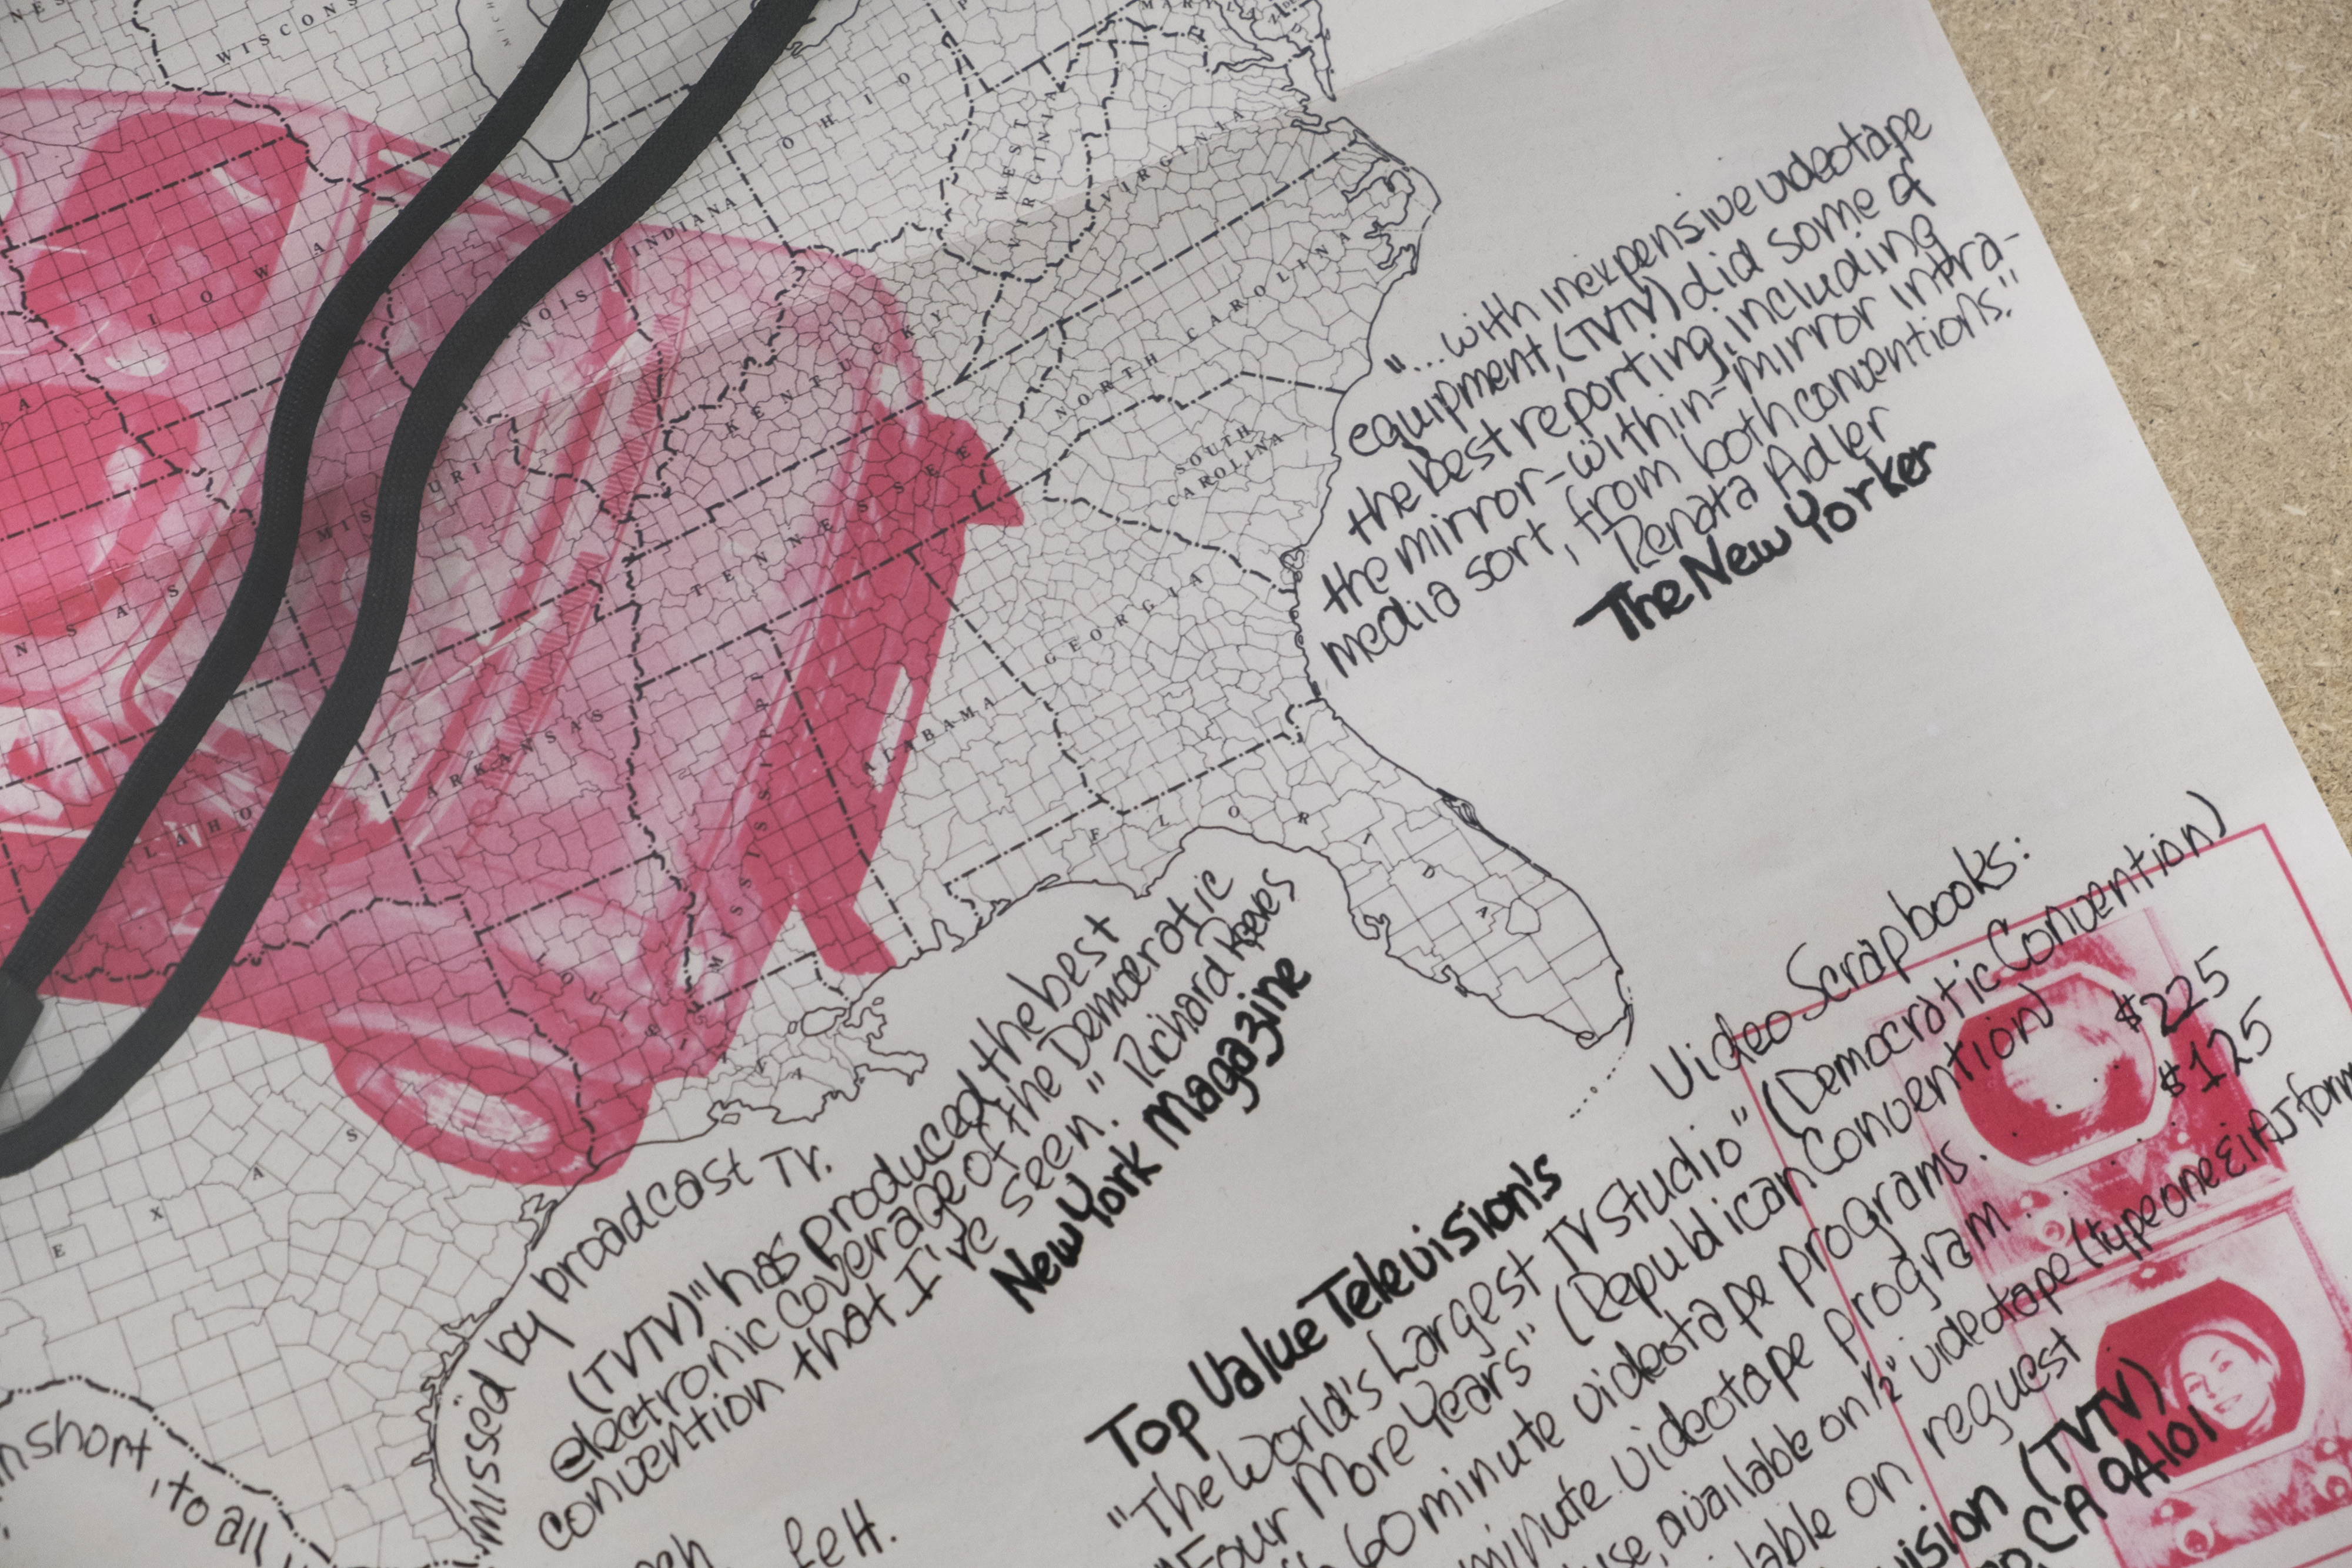 WISCONS
MICH
OHIO
MARYLAND
WEST
VIRGINIA
VIRGINIA
INDIANA
IOWA
NOIS
KENTUCKY
NORTH CAROLINA
SOUTH
CAROLINA
MISSOURI
TENNESSEE
NSAS
ARKANSAS
LAHO
MISSISSIPPI
ALABAMA
GEORGIA
FLORIDA
LOUISIANA
EXAS
"...with inexpensive videotape
equipment, (TVTV) did some of
the best reporting, including
the mirror-within-mirror intra-
media sort, from both conventions."
Renata Adler
The New Yorker
missed by broadcast TV.
(TVTV) "has produced the best
electronic coverage of the Democratic
convention that I've seen." Richard Reeves
New York Magazine
n short, to all
Top Value Television's
Video Scrapbooks:
"The World's Largest TV Studio" (Democratic Convention)
"Four More Years" (Republican Convention)
60 minute videotape programs. $225
minute videotape program. $125
use, available on ½" videotape (type one EIAJ form
lable on request
ision (TVTV)
CA 94101